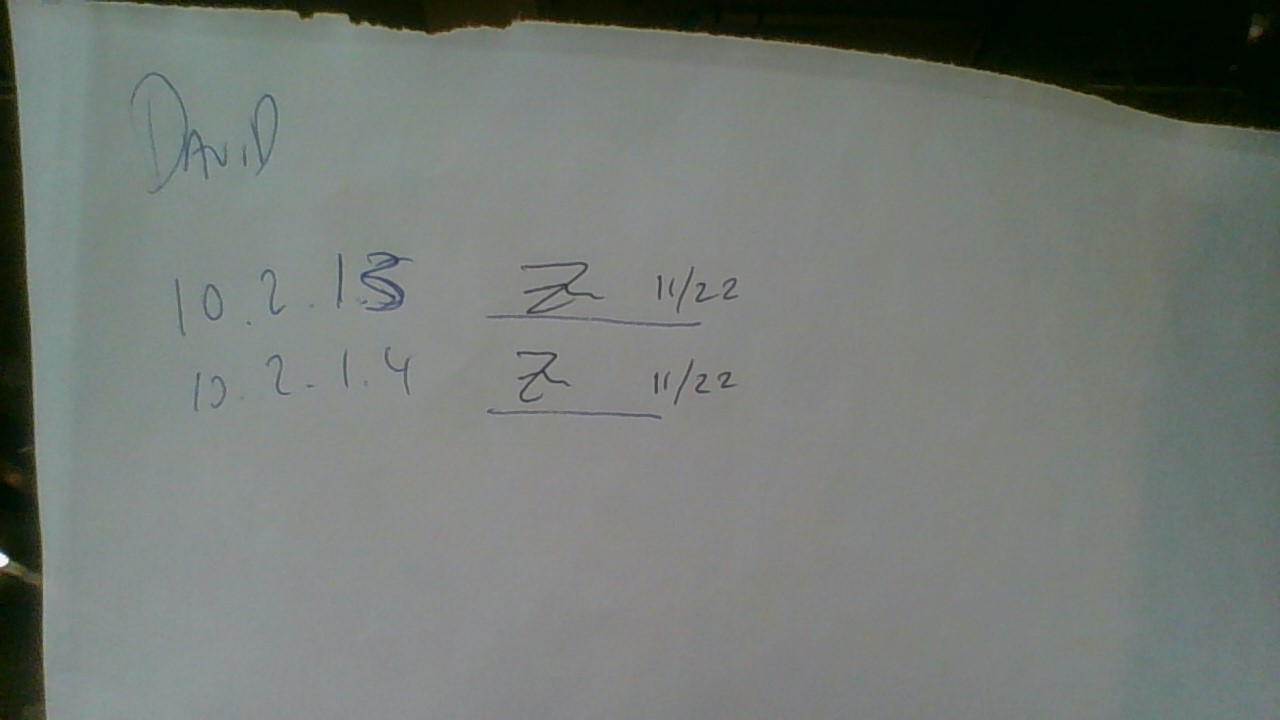 DAVID
10.2.1.3 Z 11/22
10.2.1.4 Z 11/22